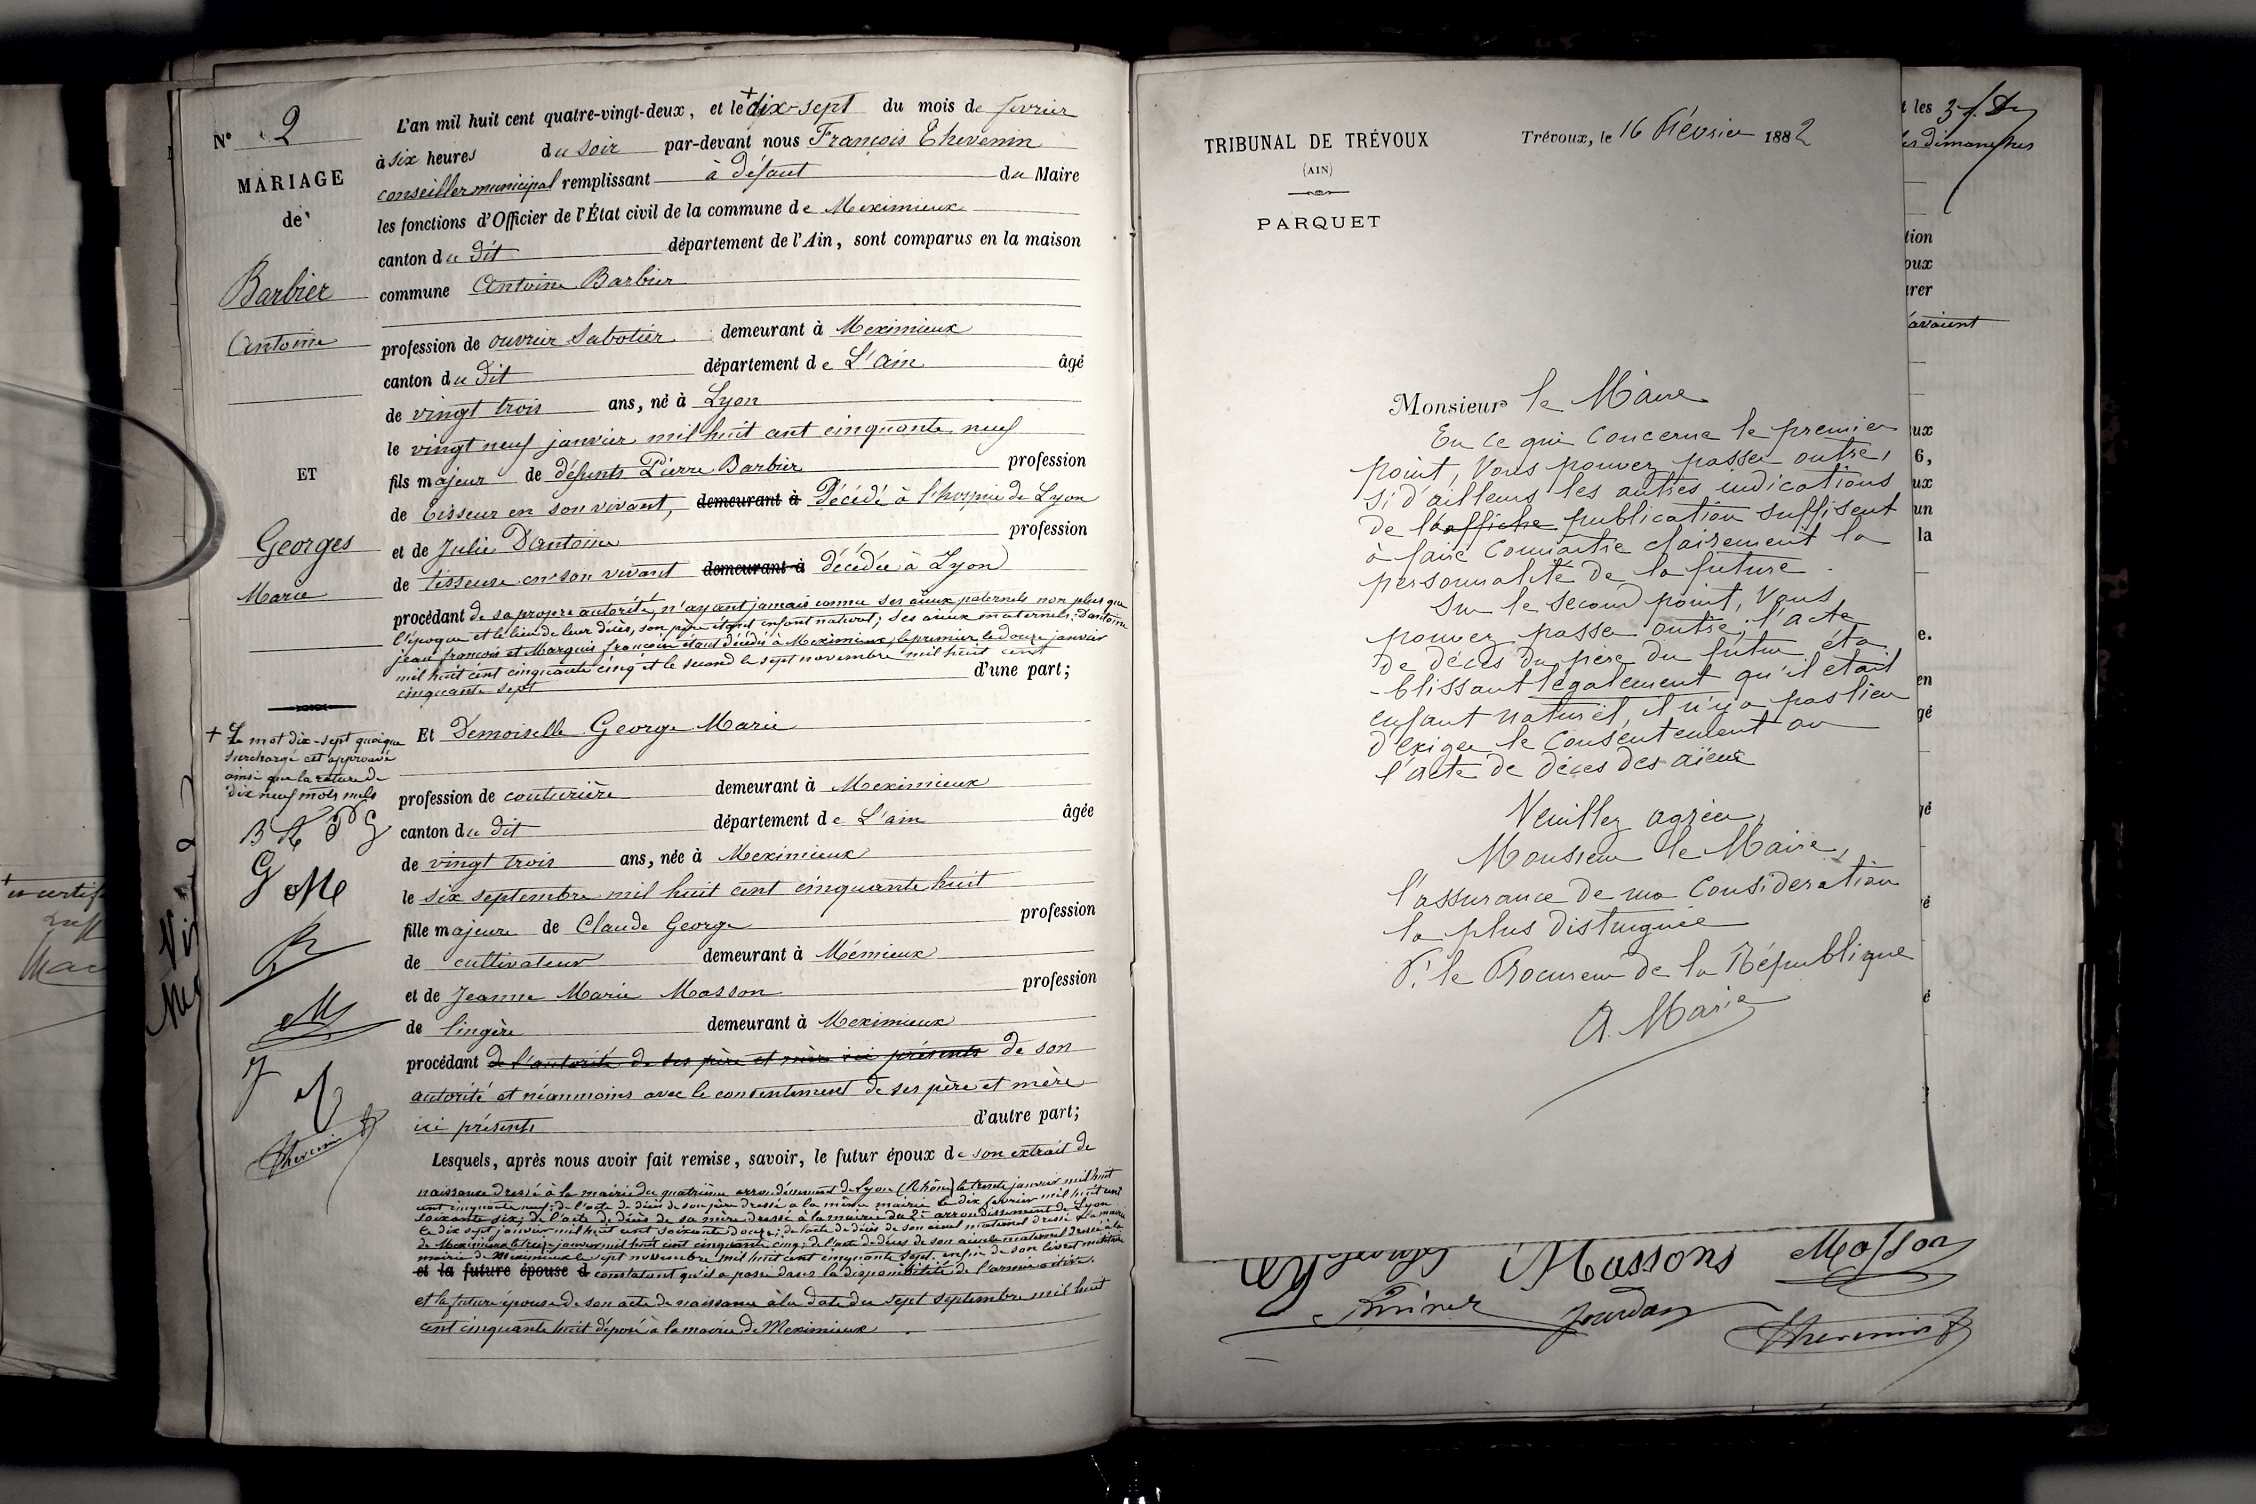 N° 2
MARIAGE
de
Barbier
Antoine
ET
Georges
Marie
+ Le mot dix-sept quoique
surchargé est approuvé
ainsi que la rature de
dix neuf mots nuls
B A P G
G M
M
J
Thevenin
L'an mil huit cent quatre-vingt-deux, et le + dix-sept du mois de fevrier
à six heures du soir par-devant nous François Thevenin
conseiller municipal remplissant à défaut du Maire
les fonctions d'Officier de l'État civil de la commune de Meximieux
canton du dit département de l'Ain, sont comparus en la maison
commune Antoine Barbier
profession de ouvrier sabotier demeurant à Meximieux
canton du dit département de L'ain âgé
de vingt trois ans, né à Lyon
le vingt neuf janvier mil huit cent cinquante neuf
fils majeur de défunts Pierre Barbier profession
de tisseur en son vivant, demeurant à Décédé à l'hospice de Lyon
et de Julie Dantoine profession
de tisseuse en son vivant demeurant à décédée à Lyon
procédant de sa propre autorité, n'ayant jamais connu ses aieux paternels non plus que
l'époque et le lieu de leur décès, son père étant enfant naturel; ses aieux maternels: Dantoine
jean francois et Marquis francoise étant décédés à Meximieux, le premier le douze janvier
mil huit cent cinquante cinq et le second le sept novembre mil huit cent
cinquante sept d'une part;
Et Demoiselle George Marie
profession de couturière demeurant à Meximieux
canton du dit département de L'ain âgée
de vingt trois ans, née à Meximieux
le six septembre mil huit cent cinquante huit
fille majeure de Claude George profession
de cultivateur demeurant à Mémieux
et de Jeanne Marie Masson profession
de lingère demeurant à Meximieux
procédant de l'autorité de ses père et mère ici présents de son
autorité et néanmoins avec le consentement de ses père et mère
ici présents d'autre part;
Lesquels, après nous avoir fait remise, savoir, le futur époux de son extrait de
naissance dressé à la mairie du quatrième arrondissement de Lyon (Rhône) le trente janvier mil huit
cent cinquante neuf; de l'acte de décès de son père dressé a la même mairie le dix fevrier mil huit cent
soixante six; de l'acte de décès de sa mère dressé à la mairie du 2e arrondissement de Lyon
le dix sept janvier mil huit cent soixante douze; de l'acte de décès de son aieul maternel dressé à la mairie
de Meximieux le treize janvier mil huit cent cinquante cinq; de l'acte de décès de son aieule maternel dressé à la
mairie de Meximieux le sept novembre mil huit cent cinquante sept. enfin de son livret militaire
et la future épouse d constatant qu'il a passé dans la disponibilité de l'armée active.
et la future épouse de son acte de naissance à la date du sept septembre mil huit
cent cinquante huit déposé à la mairie de Meximieux
TRIBUNAL DE TRÉVOUX
(AIN)
PARQUET
Trévoux, le 16 Février 1882
Monsieur le Maire
En ce qui concerne le premier
point, vous pouvez passer outre,
si d'ailleurs les autres indications
de l'affiche publication suffisent
à faire connaitre clairement la
personnalité de la future.
Sur le second point, vous
pouvez passer outre, l'acte
de décès du père du futur éta
-blissant légalement qu'il était
enfant naturel, il n'y a pas lieu
d'exiger le consentement ou
l'acte de décès des aïeux
Veuillez agréer,
Monsieur le Maire,
l'assurance de ma consideration
la plus distinguée
Pr le Procureur de la République
A. Marie
t les
les dimanches
tion
oux
urer
avaient
ux
6,
ux
un
la
e.
en
gé
gé
é
é
Massons Masson
Jourdan
Thevenin